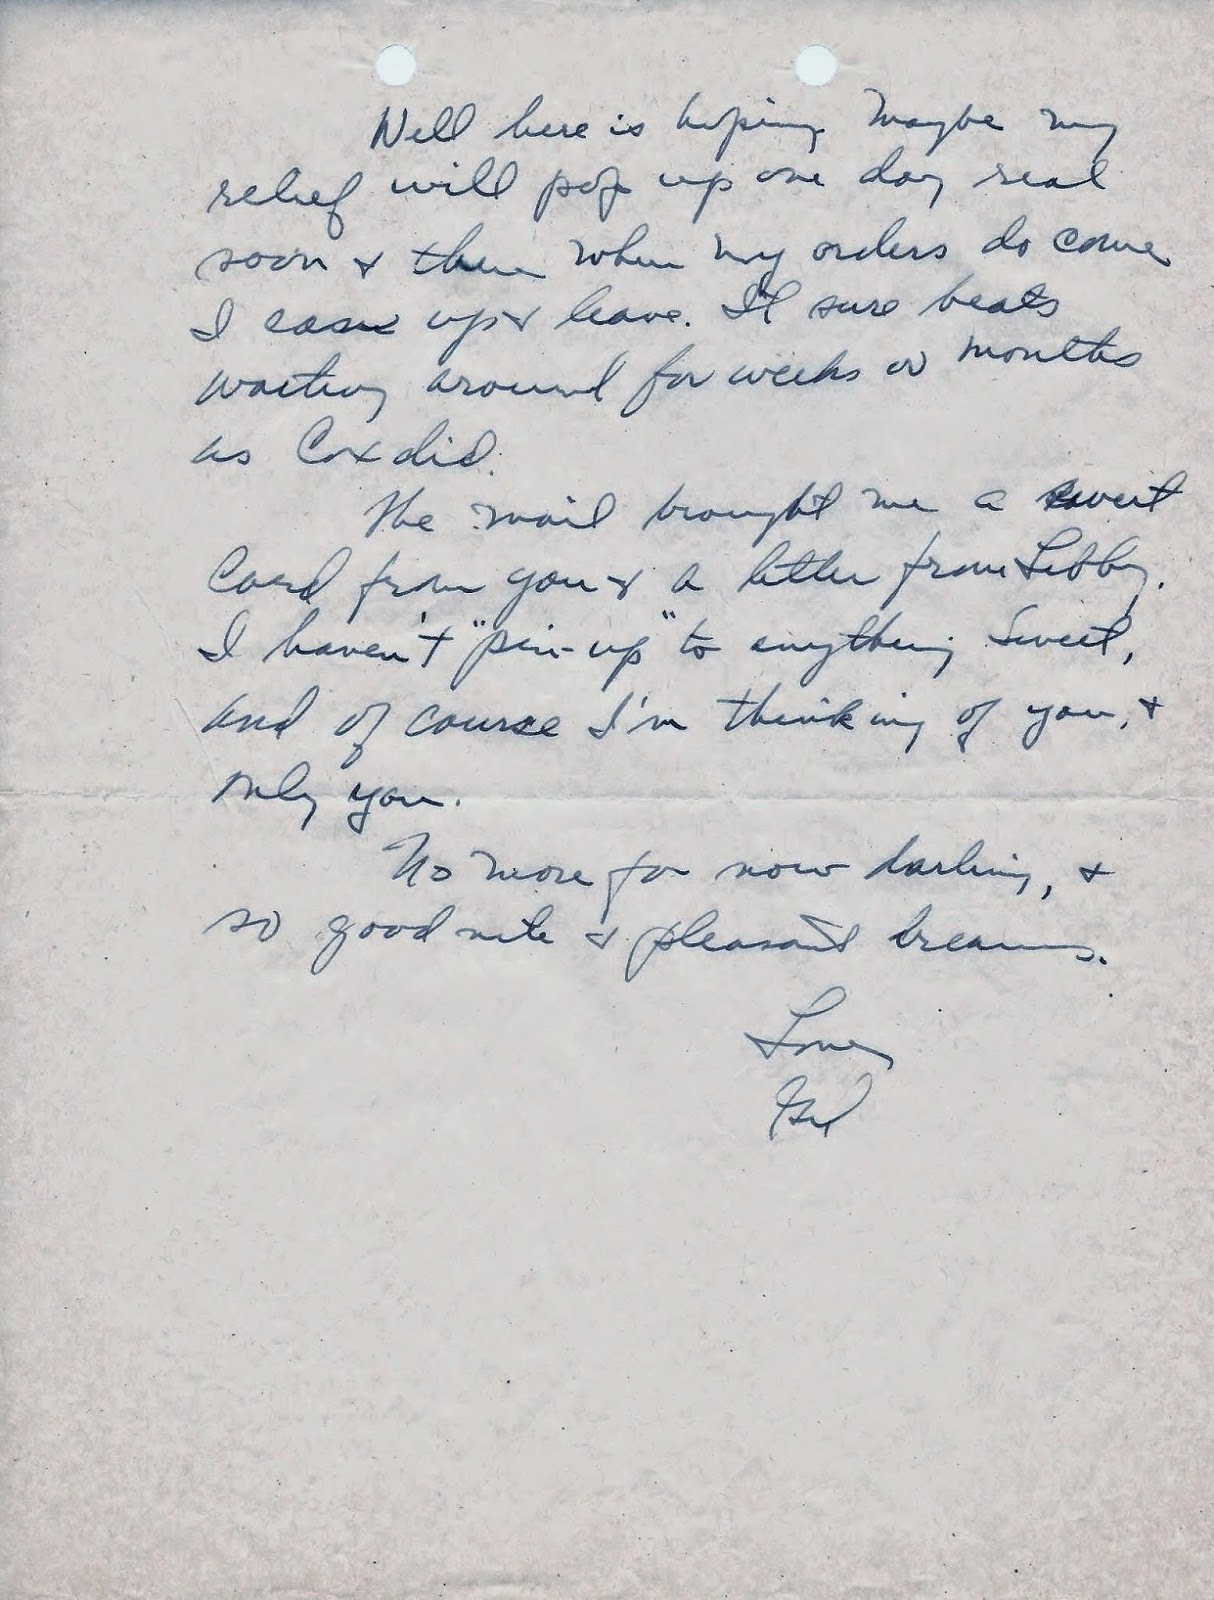 Well here is hoping maybe my
relief will pop up one day real
soon & then when my orders do come
I can up & leave. It sure beats
waiting around for weeks or months
as Cox did.
The mail brought me a sweet
card from you & a letter from Libby.
I haven't "pin-up" to anything Sweet,
and of course I'm thinking of you, &
only you.
No more for now darling, &
so good nite & pleasant dreams.
Love